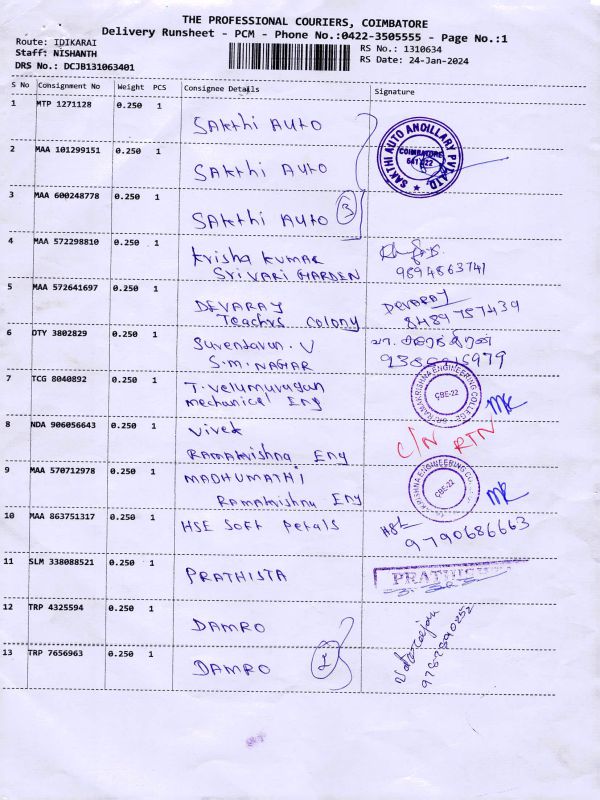 THE PROFESSIONAL COURIERS, COIMBATORE
Delivery Runsheet - PCM - Phone No.:0422-3505555 - Page No.:1
Route: IDIKARAI
Staff: NISHANTH
DRS No.: DCJB131063401
RS No.: 1310634
RS Date: 24-Jan-2024
S No Consignment No Weight PCS Consignee Details Signature
1 MTP 1271128 0.250 1 SAKthi AUTO
2 MAA 101299151 0.250 1 SAKthi AUTO
SAKTHI AUTO ANCILLARY PVT.LTD.
COIMBATORE
641 022
3 MAA 600248778 0.250 1 SAKthi AUTO 3
4 MAA 572298810 0.250 1 Krisha KUMAR
SRIVARI GARDEN 9894863741
5 MAA 572641697 0.250 1 DEVARAJ DEVARAJ
Teachrs Colony 8489757439
6 DTY 3802829 0.250 1 Surendaran. V
S.M. NAGAR
7 TCG 8040892 0.250 1 T. Velumurugan
mechanical Eng
RAMAKRISHNA ENGINEERING COLLEGE
CBE-22
8 NDA 906056643 0.250 1 Vivek C/N RTN
RAMAKrishna Eng
9 MAA 570712978 0.250 1 MADHUMATHI
RAMAKrishna Eng
CBE-22
10 MAA 863751317 0.250 1 HSE Soft Petals
9790686663
11 SLM 338088521 0.250 1 PRATHISTA PRATHISHTA
12 TRP 4325594 0.250 1 DAMRO
13 TRP 7656963 0.250 1 DAMRO 2
Natarajan